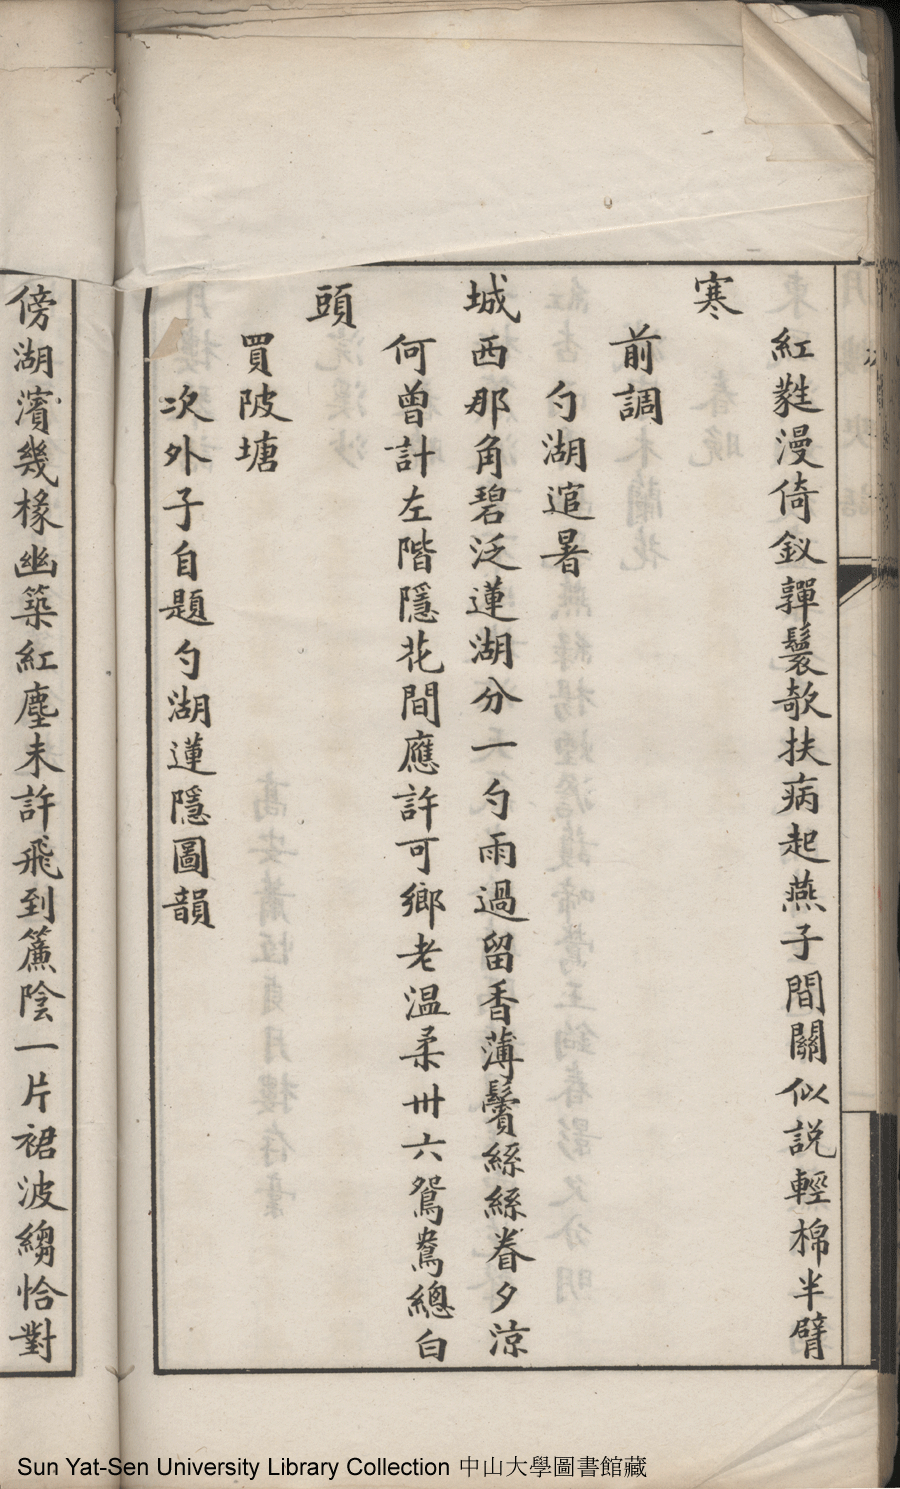 紅蕤漫倚釵嚲鬟欹扶病起燕子間關似説輕棉半臂
寒
前調
勺湖逭暑
城西那角碧泛蓮湖分一勺雨過留香薄鬢絲絲眷夕涼
何曾計左階隱花間應許可鄉老温柔卅六鴛鴦總白
頭
買陂塘
次外子自題勺湖蓮隱圖韻
傍湖濱幾椽幽築紅塵未許飛到簾陰一片裙波縐恰對
Sun Yat-Sen University Library Collection 中山大學圖書館藏